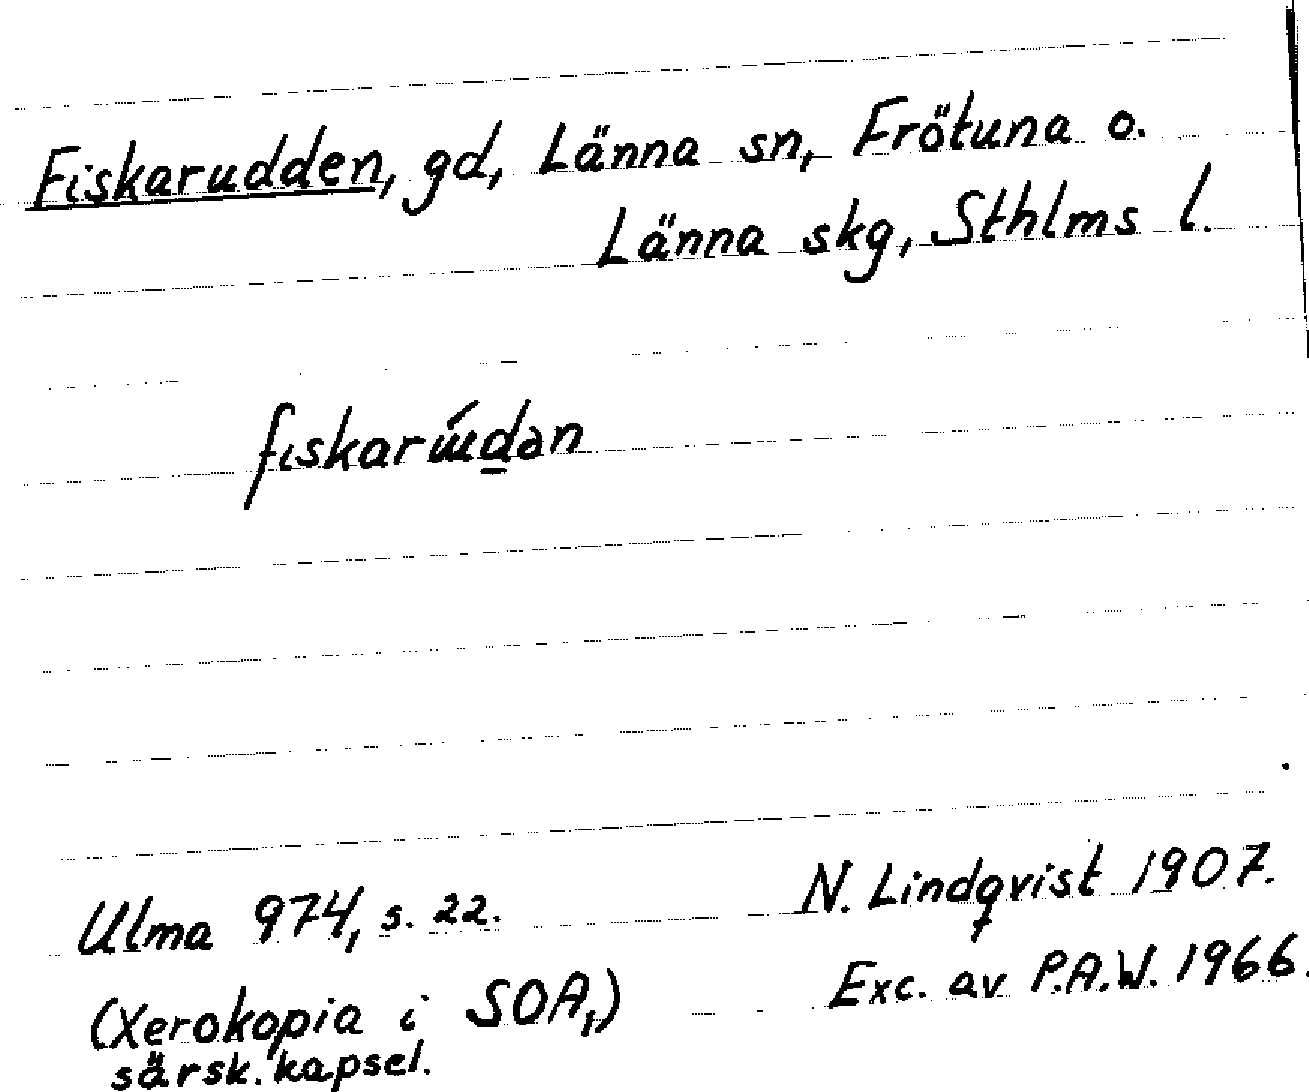 Fiskarudden, gd, Länna sn, Frötuna o.
Länna skg, Sthlms l.
fiskarúd̲ən
Ulma 974, s. 22.
N. Lindqvist 1907.
(Xerokopia i SOA,)
särsk. kapsel.
Exc. av P.A.W. 1966.